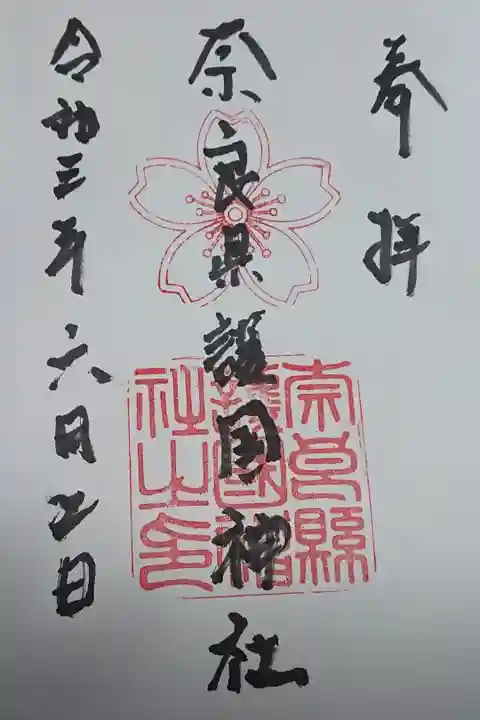 奉拝
奈良県護国神社
奈良縣
護國神
社之印
令和三年六月五日